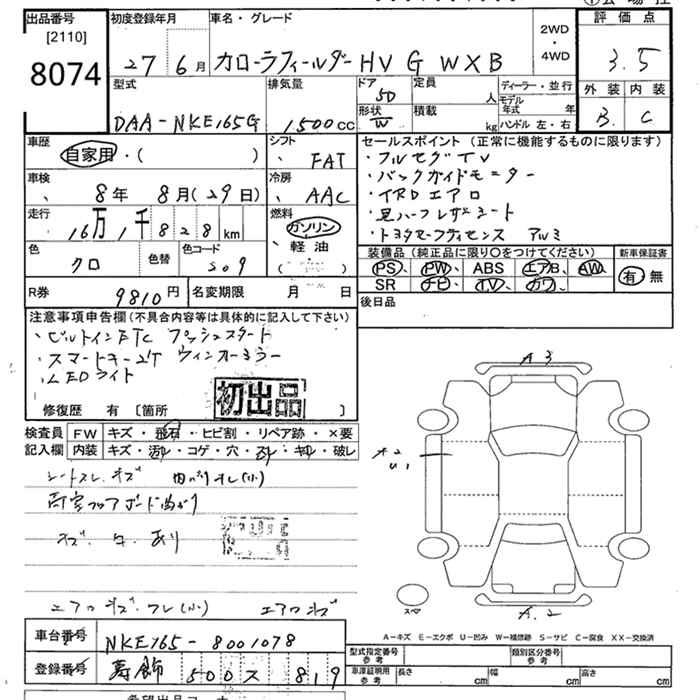 出品番号 初度登録年月 車名・グレード 2WD 評価点
[2110] ・
8074 27 6月 カローラフィールダー HV G WXB 4WD 3.5
型式 排気量 ドア 5D 定員 人 ディーラー・並行 外装 内装
DAA-NKE165G 1500cc 形状 W 積載 kg モデル年式 年 ハンドル 左・右 B C
車歴 シフト セールスポイント (正常に機能するものに限ります)
自家用・( ) FAT ・フルセグTV
車検 冷房 ・バックガイドモニター
8年 8月(29日) AAC ・TRDエアロ
走行 燃料 ・革ハーフレザーシート
16万1千828km ガソリン ・トヨタセーフティセンス アルミ
色 色替 色コード 軽油 装備品 (純正品に限り○をつけてください) 新車保証書
クロ 209 ( ) PS、PW、ABS エアB、AW 有 無
SR ナビ、TV、カワ
R券 9810円 名変期限 月 日 後日品
注意事項申告欄(不具合内容等は具体的に記入して下さい)
・ビルトインETC プッシュスタート
・スマートキー2ケ ウィンカーミラー
・LEDライト
初出品
修復歴 有 [箇所 ]
検査員 FW キズ・飛石・ヒビ割・リペア跡・×要
記入欄 内装 キズ・汚レ・コゲ・穴・スレ・キレ・破レ
シートスレ、キズ 内ハリヨレ(小)
荷室フロアボード曲がり
キズ.
エアロキズ・ワレ(小) エアロキズ
A3
A2
U1
スペア
A.2
A-キズ E-エクボ U-凹み W-補修跡 S-サビ C-腐食 XX-交換済
車台番号 NKE165-8001078
登録番号 習志野 500 ス 819
型式指定番号 参考 類別区分番号 参考
車庫証明用 参考 長さ cm 幅 cm 高さ cm